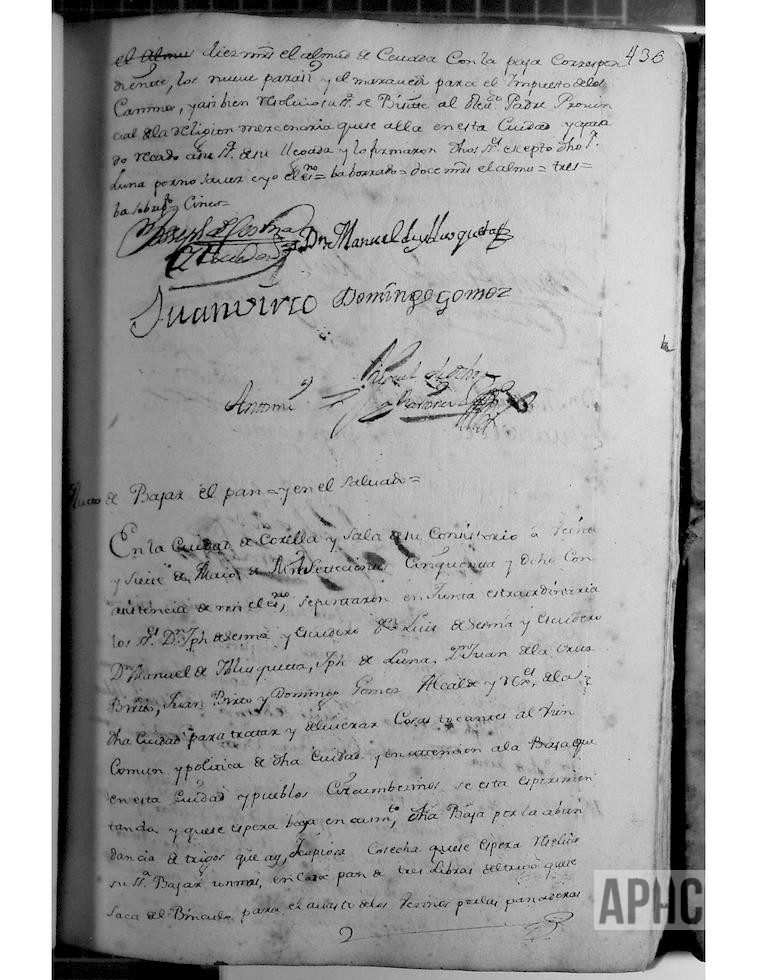 436
el Almu diez mrs el almud de Cevada Con la paja Correspon
diente, los nueve para si y el maravedi para el Impuesto de los
Caminos, y asi bien resolvio su sa. se Visite al Padre Provin
cial de la religion mercenaria que se alla en esta Ciudad y
do recado a su sa. de su llegada y lo firmaron dhos ss. escepto dho
Luna por no saver e yo el esno = ba borrado = doce mrs el almu = tres =
ba sobrepto. Cinco =
Joseph de Sesma
y Escudero
Dn. Manuel de Ybusqueta
Juan Virto Domingo Gomez
Ante mi
Auto de Bajar el pan = y en el salvado =
En la Ciudad de Corella y Sala de su Consistorio a Veinte
y siete de Maio de Mil Setecientos Cinquenta y Ocho Con
asistencia de mi el esno, se juntaron en Junta estraordinaria
los ss. Dn. Jph de Sesma y Escudero Dn. Luis de Sesma y Escudero
Dn. Manuel de Ybusqueta, Jph de Luna, Dn. Juan de la Cruz
Birto, Juan Birto y Domingo Gomez Alcalde y de la
dha Ciudad para tratar y deliverar Cosas tocantes al vien
Comun y politica de dha Ciudad y en attencion a la Baja que
en esta Ciudad y pueblos Circumbecinos se esta esperimen
tando y que se espera baya en aumto, dha Baja por la abun
dancia de trigos que ay, Copiosa Cosecha que se espera Resolvio
su sa. Bajar un mrs, en cada pan de tres Libras del trigo que se
saca del Binculo para el avasto de los Vecinos por las panaderas
APHC